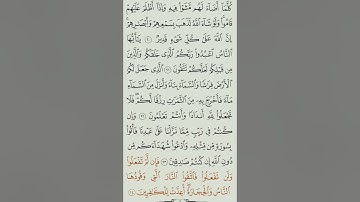 كُلَّمَآ أَضَآءَ لَهُم مَّشَوۡاْ فِيهِ وَإِذَآ أَظۡلَمَ عَلَيۡهِمۡ
قَامُواْۚ وَلَوۡ شَآءَ ٱللَّهُ لَذَهَبَ بِسَمۡعِهِمۡ وَأَبۡصَٰرِهِمۡۚ
إِنَّ ٱللَّهَ عَلَىٰ كُلِّ شَيۡءٖ قَدِيرٞ ٢٠ يَٰٓأَيُّهَا
ٱلنَّاسُ ٱعۡبُدُواْ رَبَّكُمُ ٱلَّذِي خَلَقَكُمۡ وَٱلَّذِينَ
مِن قَبۡلِكُمۡ لَعَلَّكُمۡ تَتَّقُونَ ٢١ ٱلَّذِي جَعَلَ لَكُمُ
ٱلۡأَرۡضَ فِرَٰشٗا وَٱلسَّمَآءَ بِنَآءٗ وَأَنزَلَ مِنَ ٱلسَّمَآءِ
مَآءٗ فَأَخۡرَجَ بِهِۦ مِنَ ٱلثَّمَرَٰتِ رِزۡقٗا لَّكُمۡۖ فَلَا
تَجۡعَلُواْ لِلَّهِ أَندَادٗا وَأَنتُمۡ تَعۡلَمُونَ ٢٢ وَإِن
كُنتُمۡ فِي رَيۡبٖ مِّمَّا نَزَّلۡنَا عَلَىٰ عَبۡدِنَا فَأۡتُواْ
بِسُورَةٖ مِّن مِّثۡلِهِۦ وَٱدۡعُواْ شُهَدَآءَكُم مِّن
دُونِ ٱللَّهِ إِن كُنتُمۡ صَٰدِقِينَ ٢٣ فَإِن لَّمۡ تَفۡعَلُواْ
وَلَن تَفۡعَلُواْ فَٱتَّقُواْ ٱلنَّارَ ٱلَّتِي وَقُودُهَا
ٱلنَّاسُ وَٱلۡحِجَارَةُۖ أُعِدَّتۡ لِلۡكَٰفِرِينَ ٢٤